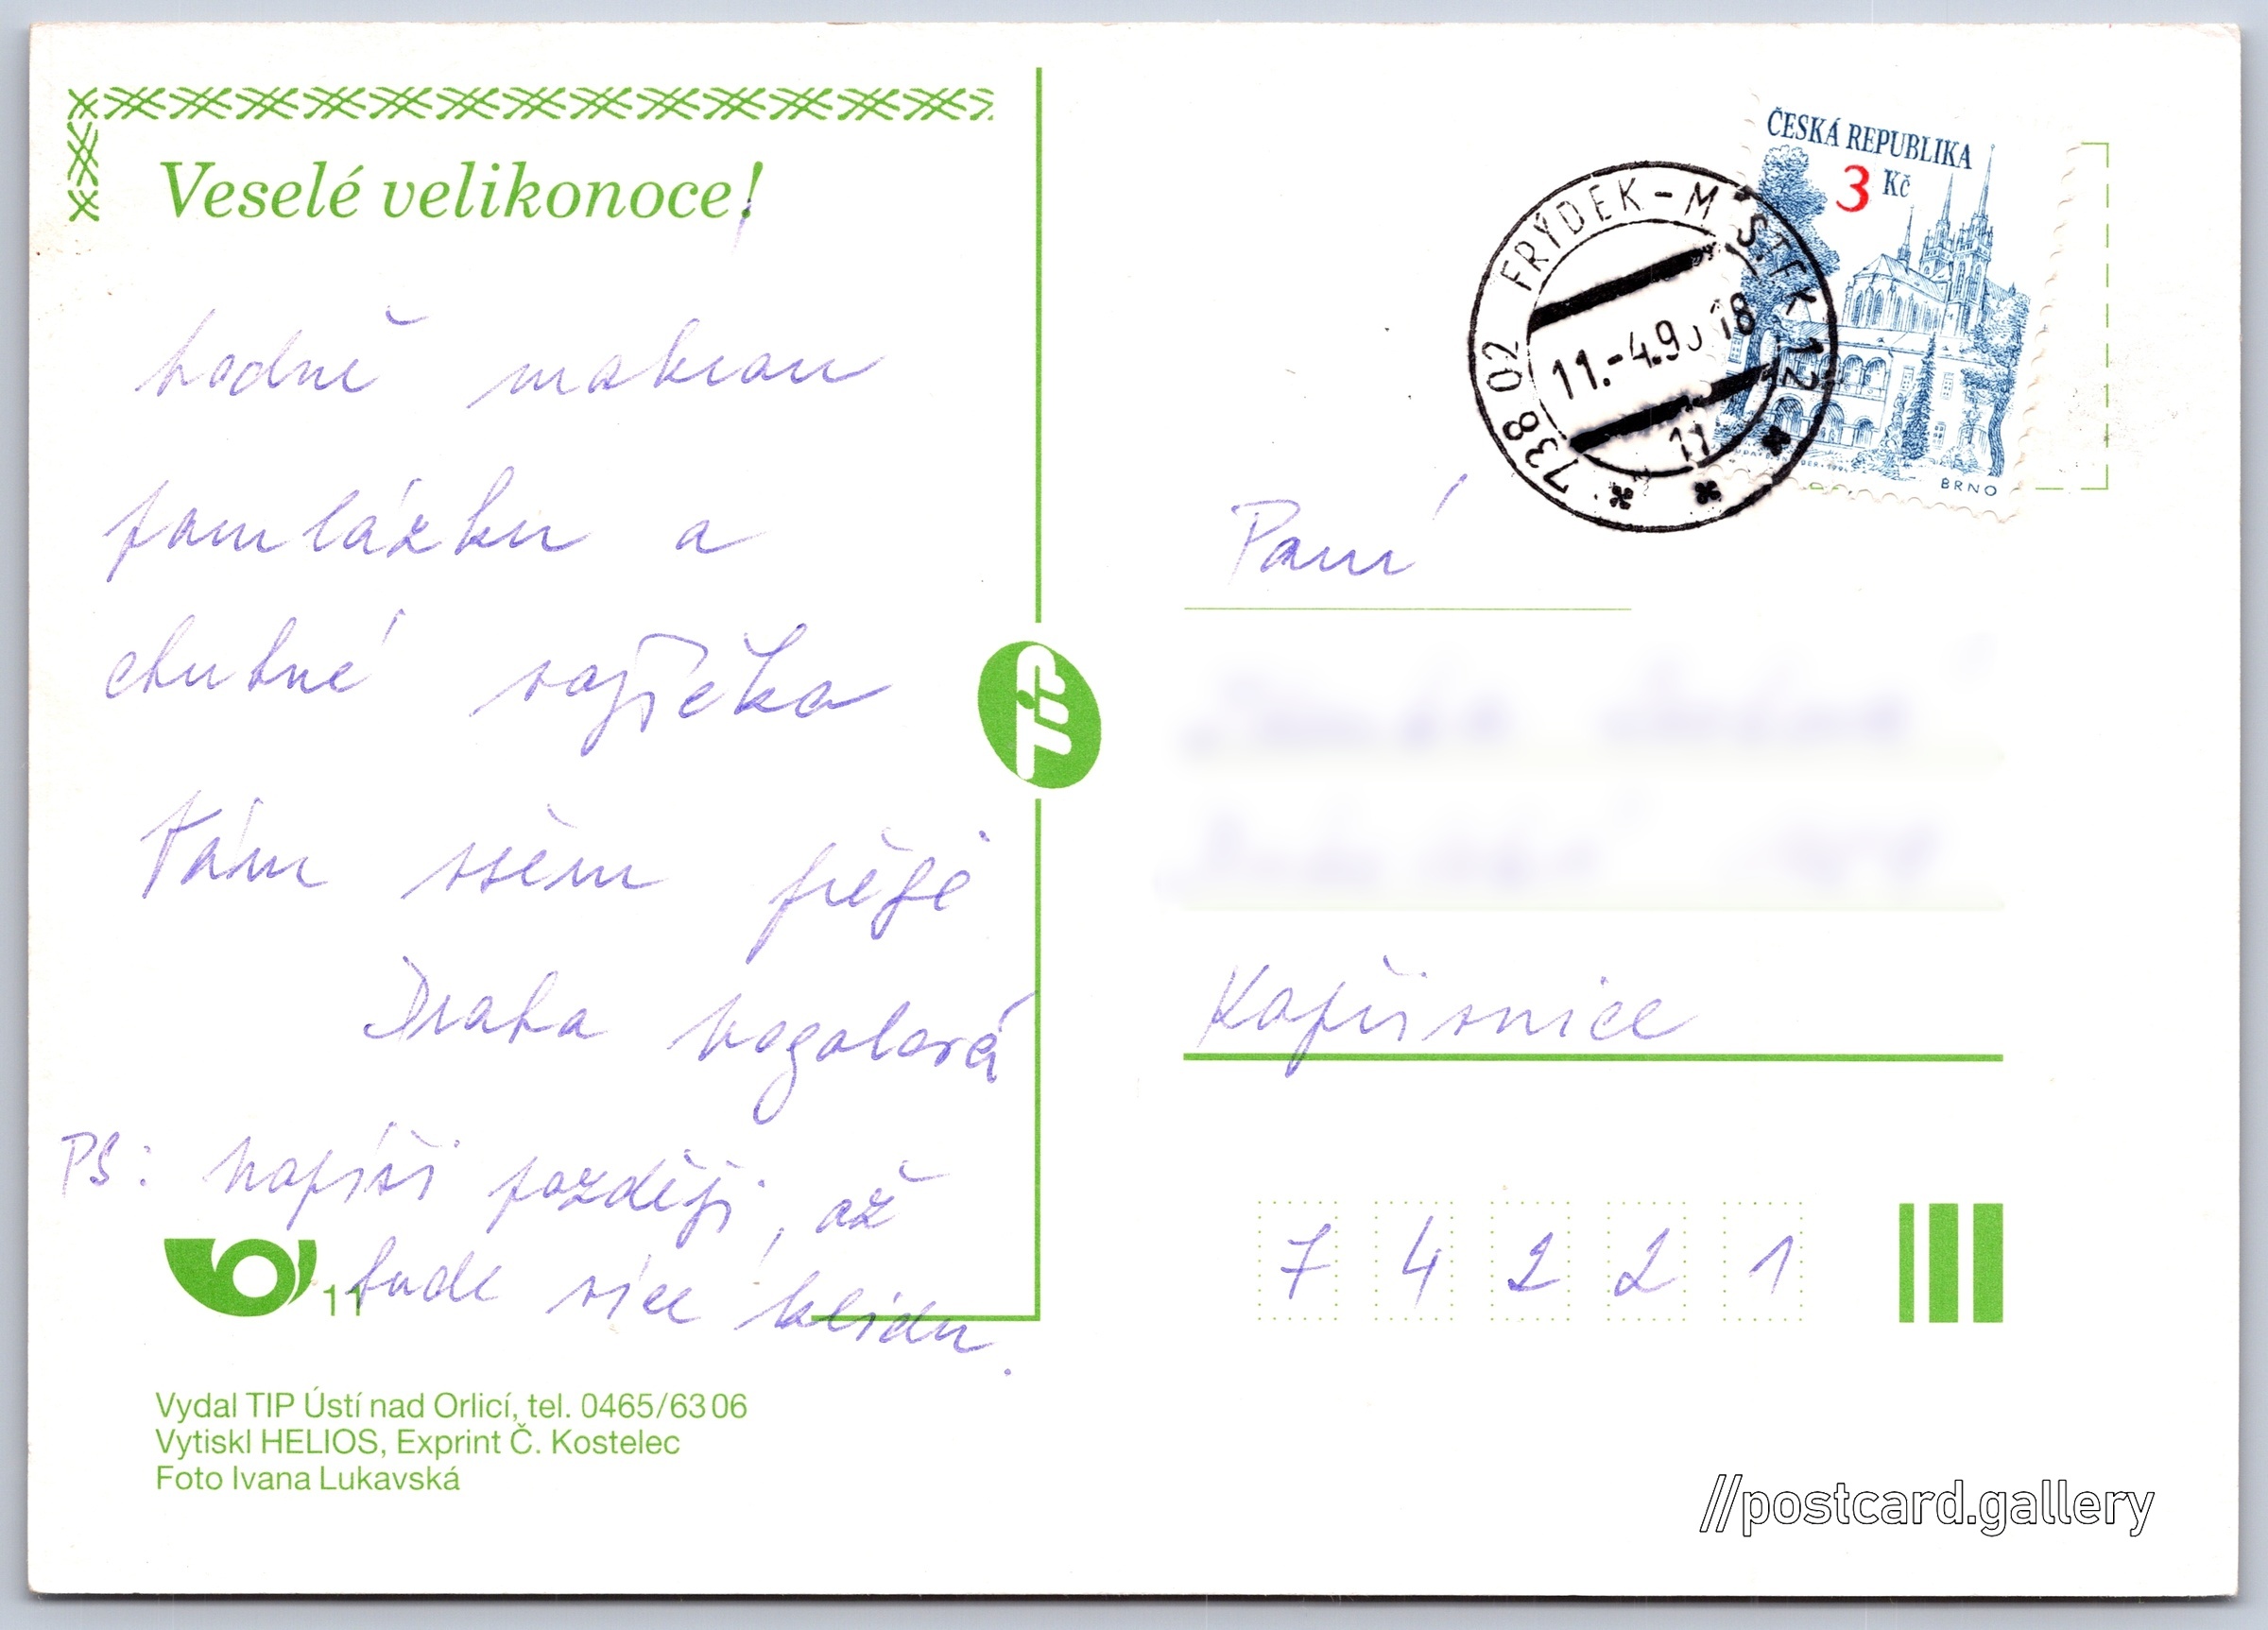 Veselé velikonoce!
hodně mokrou
pomlázku a
chutné vajíčka
Vám všem přeje
Draha
PS: Napíši později, až
bude více klidu.
11
Vydal TIP Ústí nad Orlicí, tel. 0465/6306
Vytiskl HELIOS, Exprint Č. Kostelec
Foto Ivana Lukavská
TIP
ČESKÁ REPUBLIKA
3 Kč
BRNO
738 02 FRÝDEK-MÍSTEK 12
11.-4.9 18
11
Paní
Kopřivnice
7 4 2 2 1
//postcard.gallery